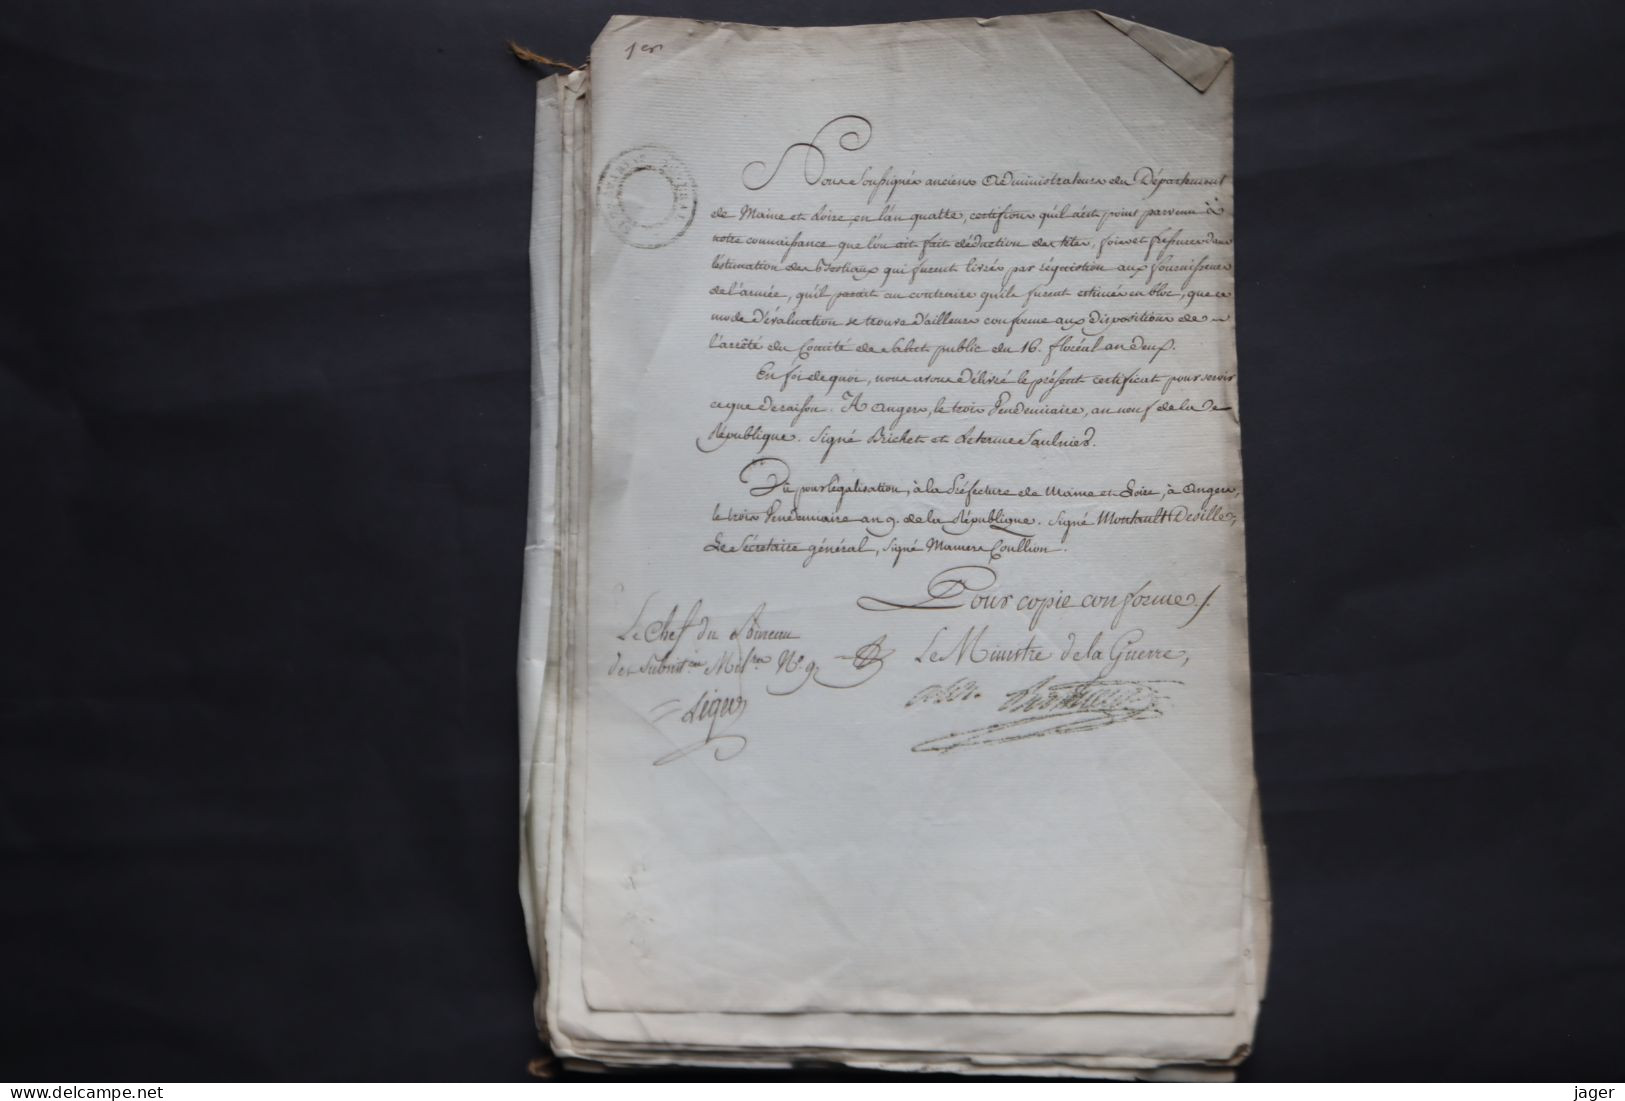 1er
Nous Soussignés anciens Administrateurs du Département
de Maine et Loire, en l'an quatre, certifions qu'il n'est point parvenu à
notre connaissance que l'on ait fait déduction des têtes, foies et fressures dans
l'estimation des Bestiaux qui furent livrés par réquisition aux fournisseurs
de l'armée, qu'il parait au contraire qu'ils furent estimés en bloc, que ce
mode d'évaluation se trouve d'ailleurs conforme aux dispositions de
l'arrêté du Comité de Salut public du 16. floréal an deux.
En foi de quoi, nous avons délivré le présent certificat pour servir
ce que de raison. A Angers, le trois Vendémiaire, an neuf de la
République. Signé Brichet et Leterme Saulnier.
Vu pour légalisation, à la Préfecture de Maine et Loire, à Angers,
le trois Vendémiaire an 9. de la République. Signé Montault Desilles,
Le Secrétaire général, signé Mamers Coullion.
Pour copie conforme /.
Le Ministre de la Guerre,
Le Chef du Bureau
des Subsist.ces Milit.res N.º 9
Leger
jager